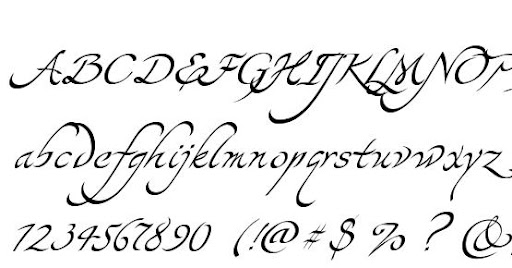 ABCDEFGHIJKLMNOP
abcdefghijklmnopqrstuvwxyz
1234567890 (!@#$%?&